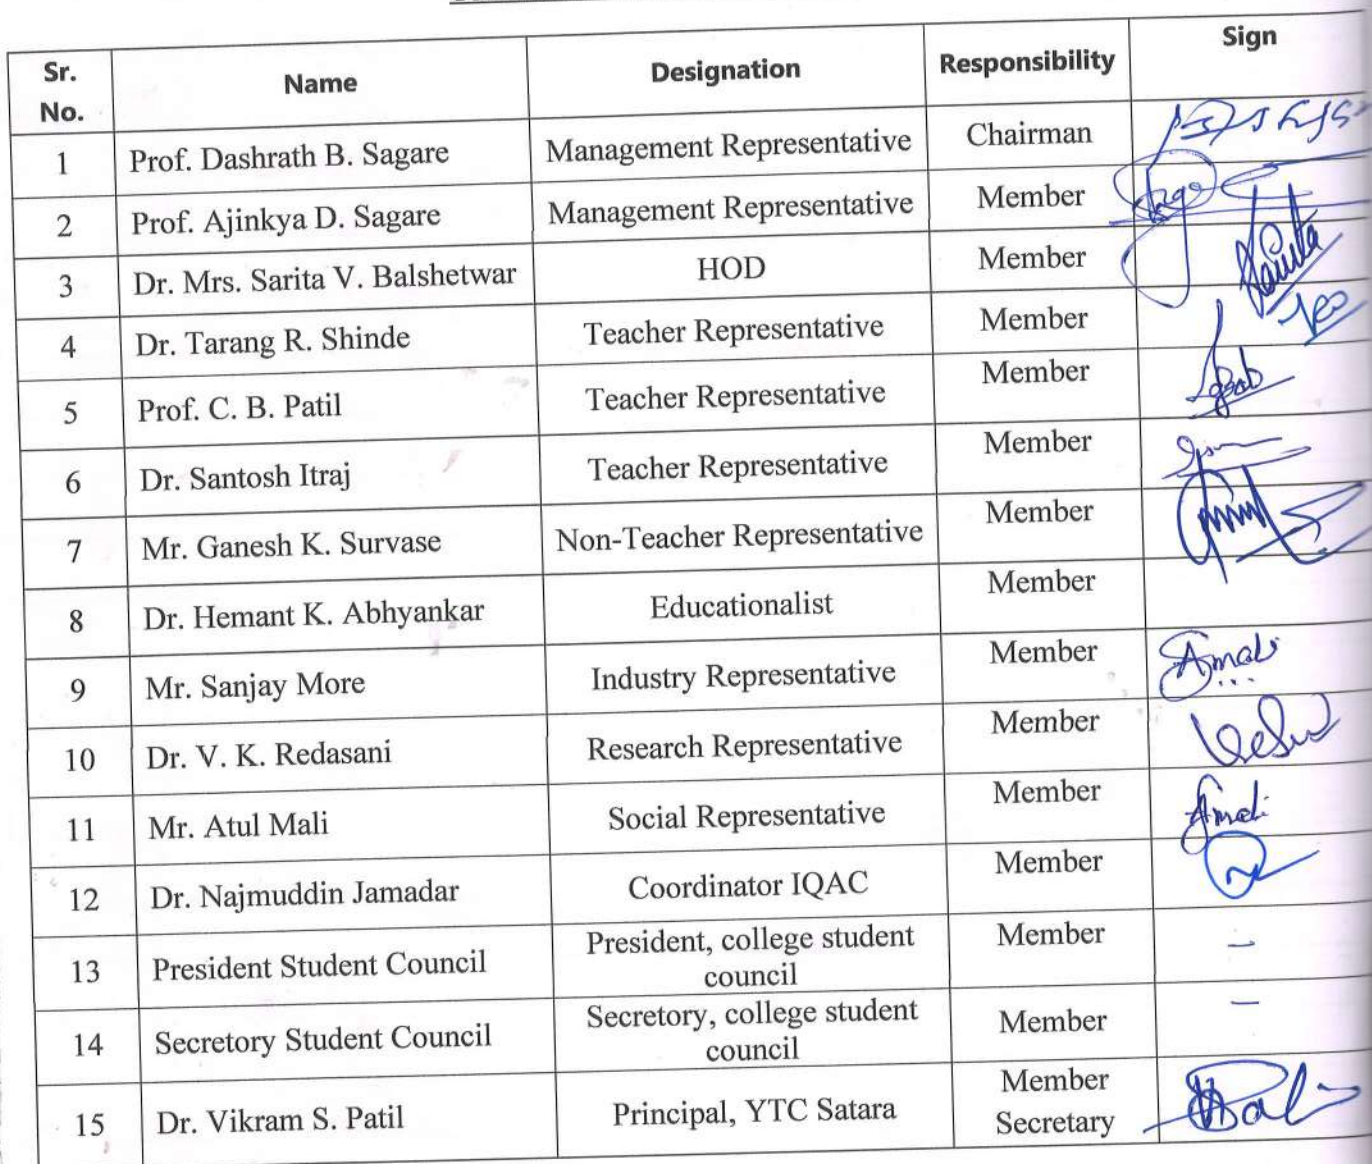 Sr. No. Name Designation Responsibility Sign
1 Prof. Dashrath B. Sagare Management Representative Chairman
2 Prof. Ajinkya D. Sagare Management Representative Member
3 Dr. Mrs. Sarita V. Balshetwar HOD Member
4 Dr. Tarang R. Shinde Teacher Representative Member
5 Prof. C. B. Patil Teacher Representative Member
6 Dr. Santosh Itraj Teacher Representative Member
7 Mr. Ganesh K. Survase Non-Teacher Representative Member
8 Dr. Hemant K. Abhyankar Educationalist Member
9 Mr. Sanjay More Industry Representative Member
10 Dr. V. K. Redasani Research Representative Member
11 Mr. Atul Mali Social Representative Member
12 Dr. Najmuddin Jamadar Coordinator IQAC Member
13 President Student Council President, college student council Member -
14 Secretory Student Council Secretory, college student council Member -
15 Dr. Vikram S. Patil Principal, YTC Satara Member Secretary